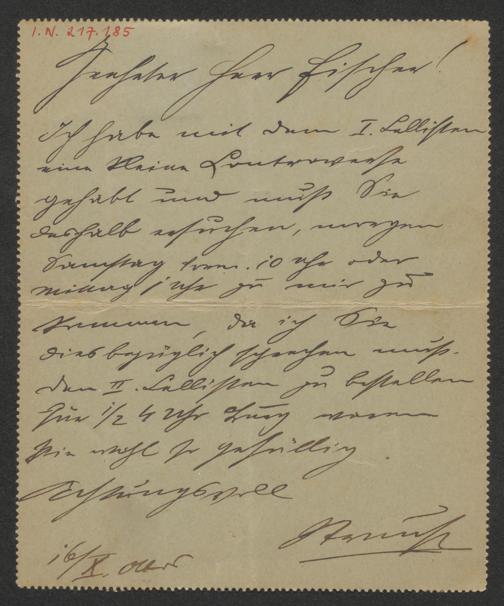 I.N. 217.185
Geehrter Herr Fischer!
Ich habe mit dem I. Cellisten
eine kleine Controverse
gehabt und muß Sie
deshalb ersuchen, morgen
Samstag 10 Uhr oder
Mittag 1 Uhr zu mir zu
kommen, da ich Sie
diesbezüglich sprechen muß.
Den II. Cellisten zu bestellen
für 1/2 4 Uhr waren
Sie wohl so gefällig.
Achtungsvoll
Strauß
16/X.